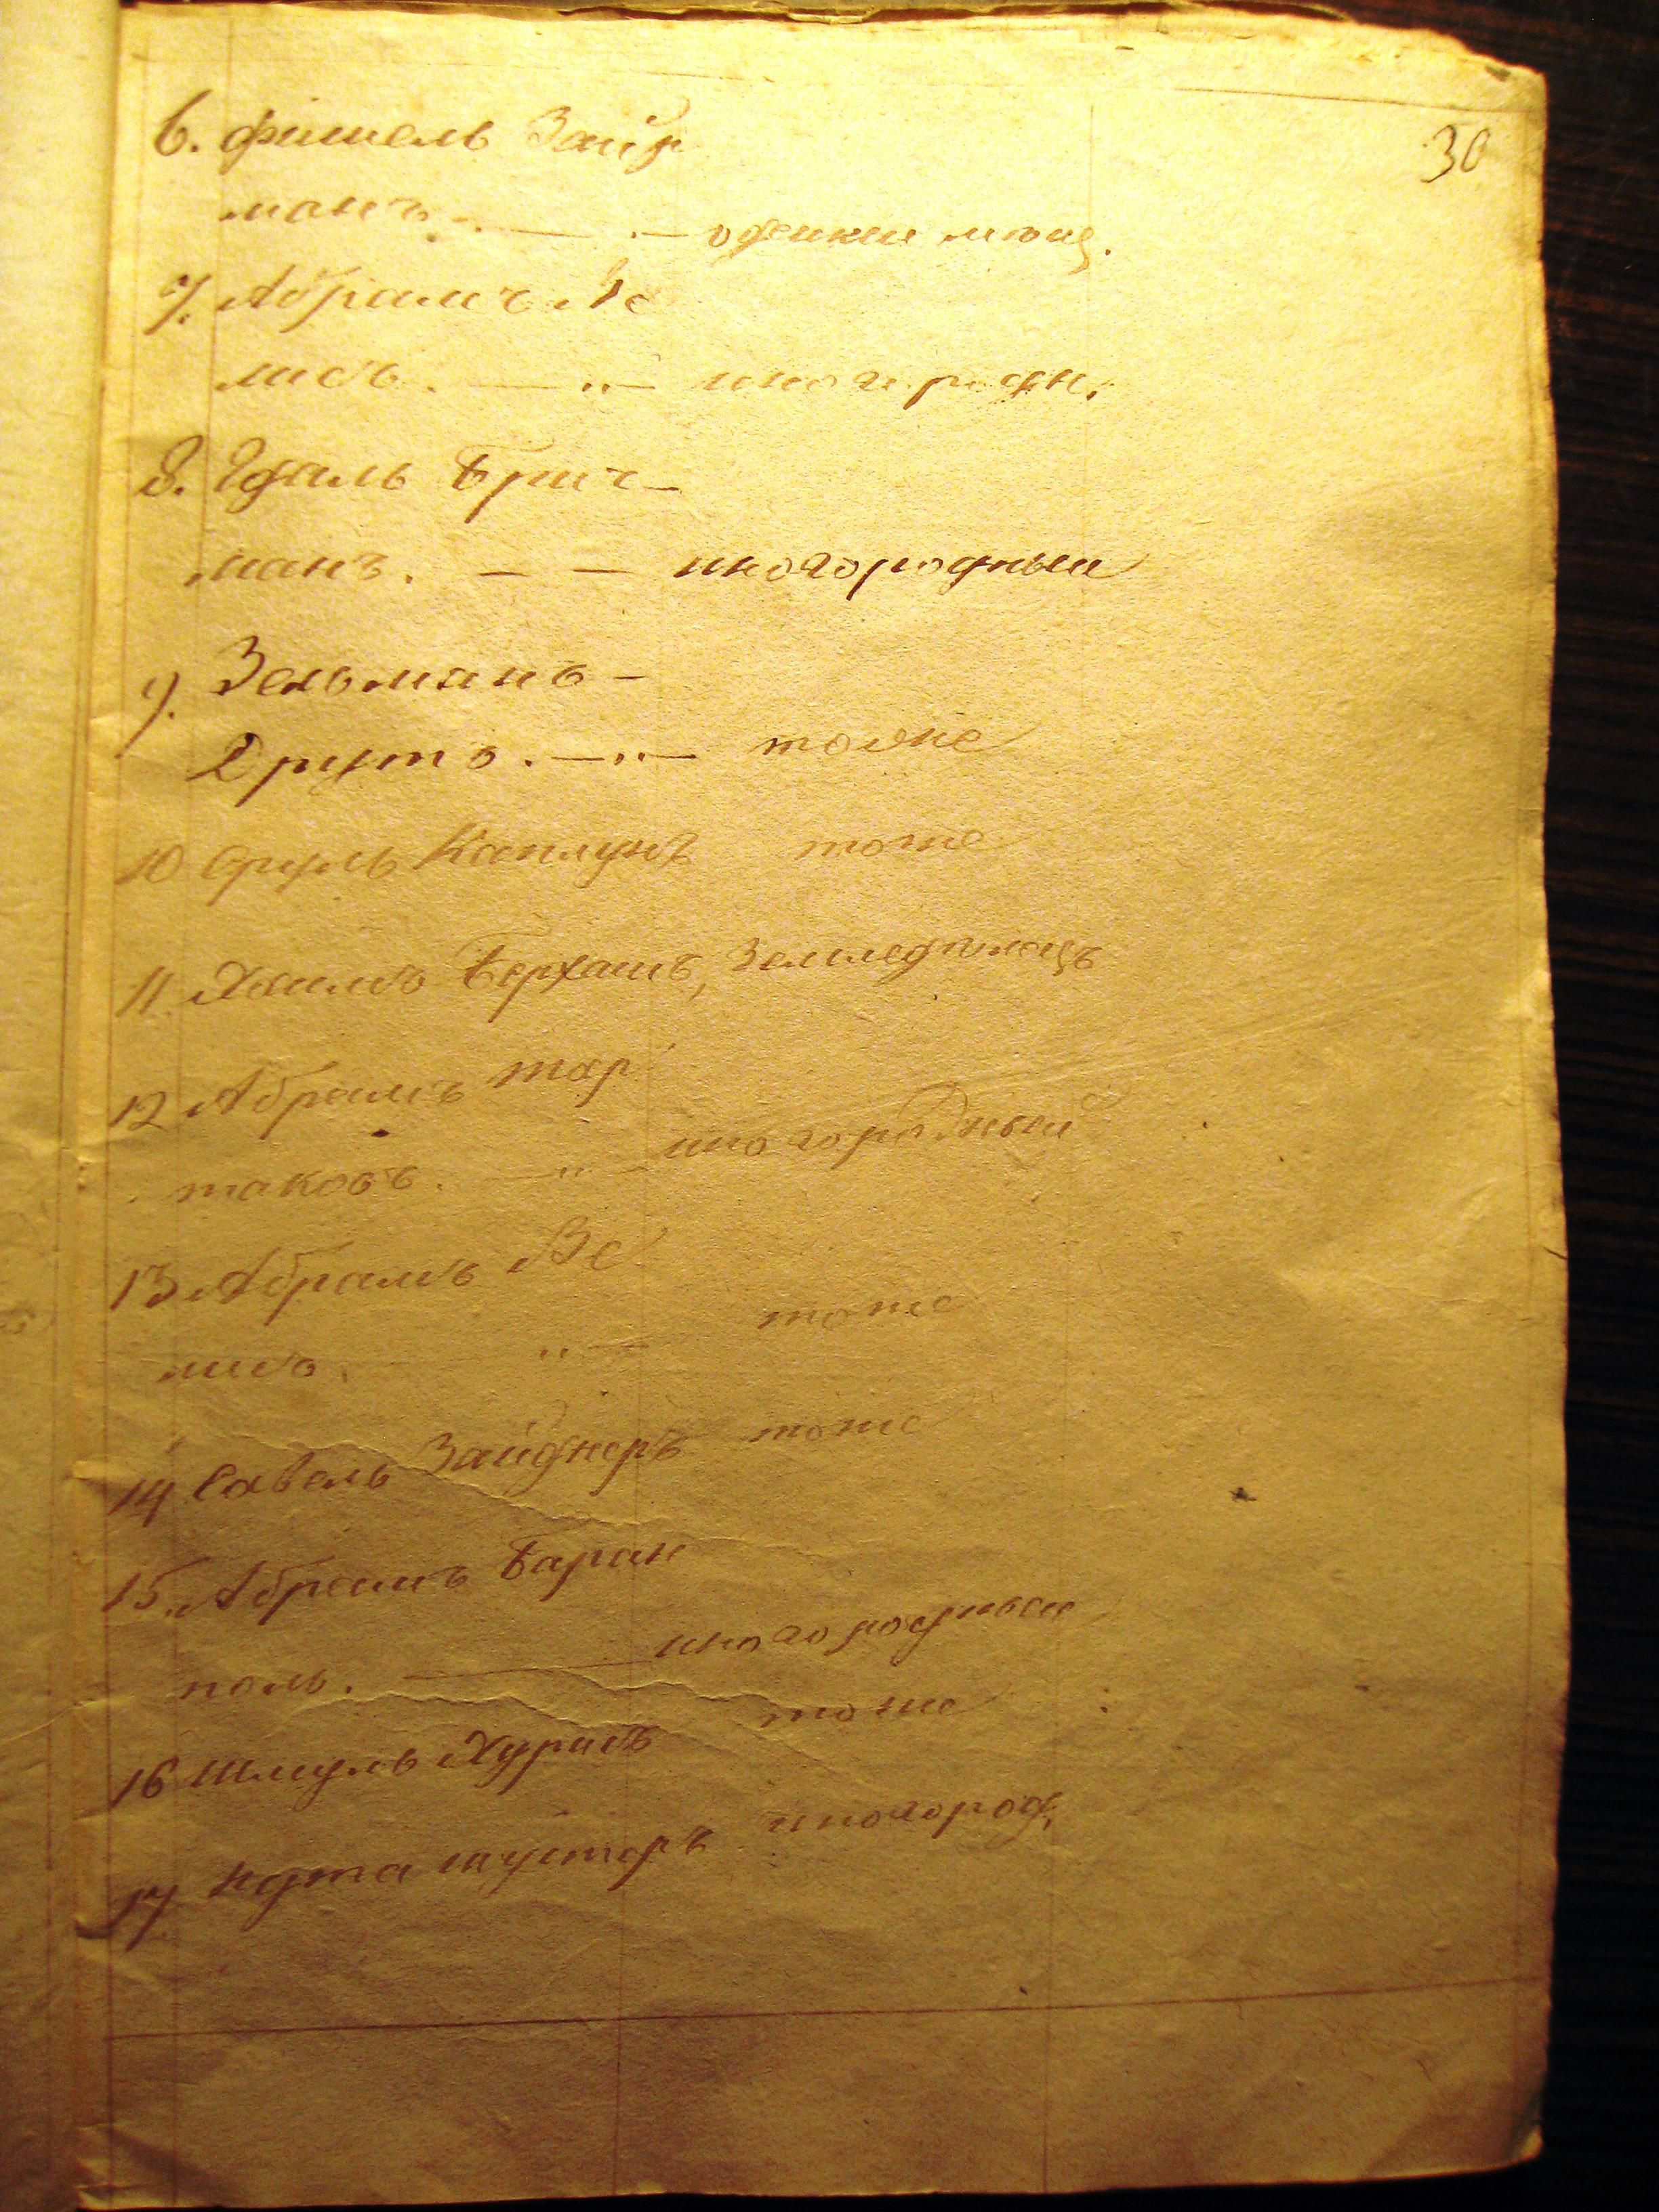 30
6. Фишель Зайд
манъ. — " — одески мѣщ.
7. Абрамъ Ве
лисъ. — " — иногородн.
8. Гдаль Брит-
манъ. — — иногородный
9. Зельманъ -
Друтъ. — " — тоже
10 Сруль Каплунъ тоже
11. Хаимъ Берхашъ, Земледѣлецъ
12 Абрамъ Тар
таковъ. — " — иногородный
13 Абрамъ Ве
лисъ. " — тоже
14 Савель Зайднеръ тоже
15. Абрамъ Баран
поль. — иногородный
16 Шмуль Хурисъ тоже
17. Нута Шустеръ иногород.